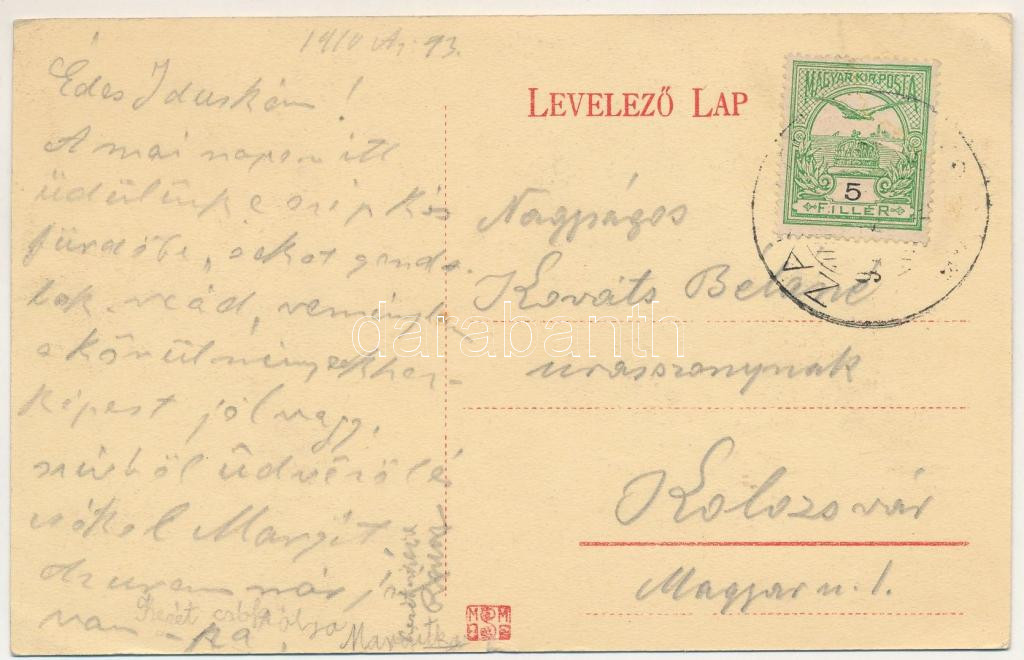 1910
Édes Iduskám!
A mai napon itt
üdülünk e szép kis
fürdőbe, sokat gondo-
lok reád, reménylem
a körülményekhez-
képest jól vagy,
szívből üdvözöl és
csókol Margit
Az uram már jól
van
Margitka
LEVELEZŐ LAP
MAGYAR KIR. POSTA
5
FILLÉR
Nagyságos
Kováts Beláné
urasszonynak
Kolozsvár
Magyar u. 1.
darabanth